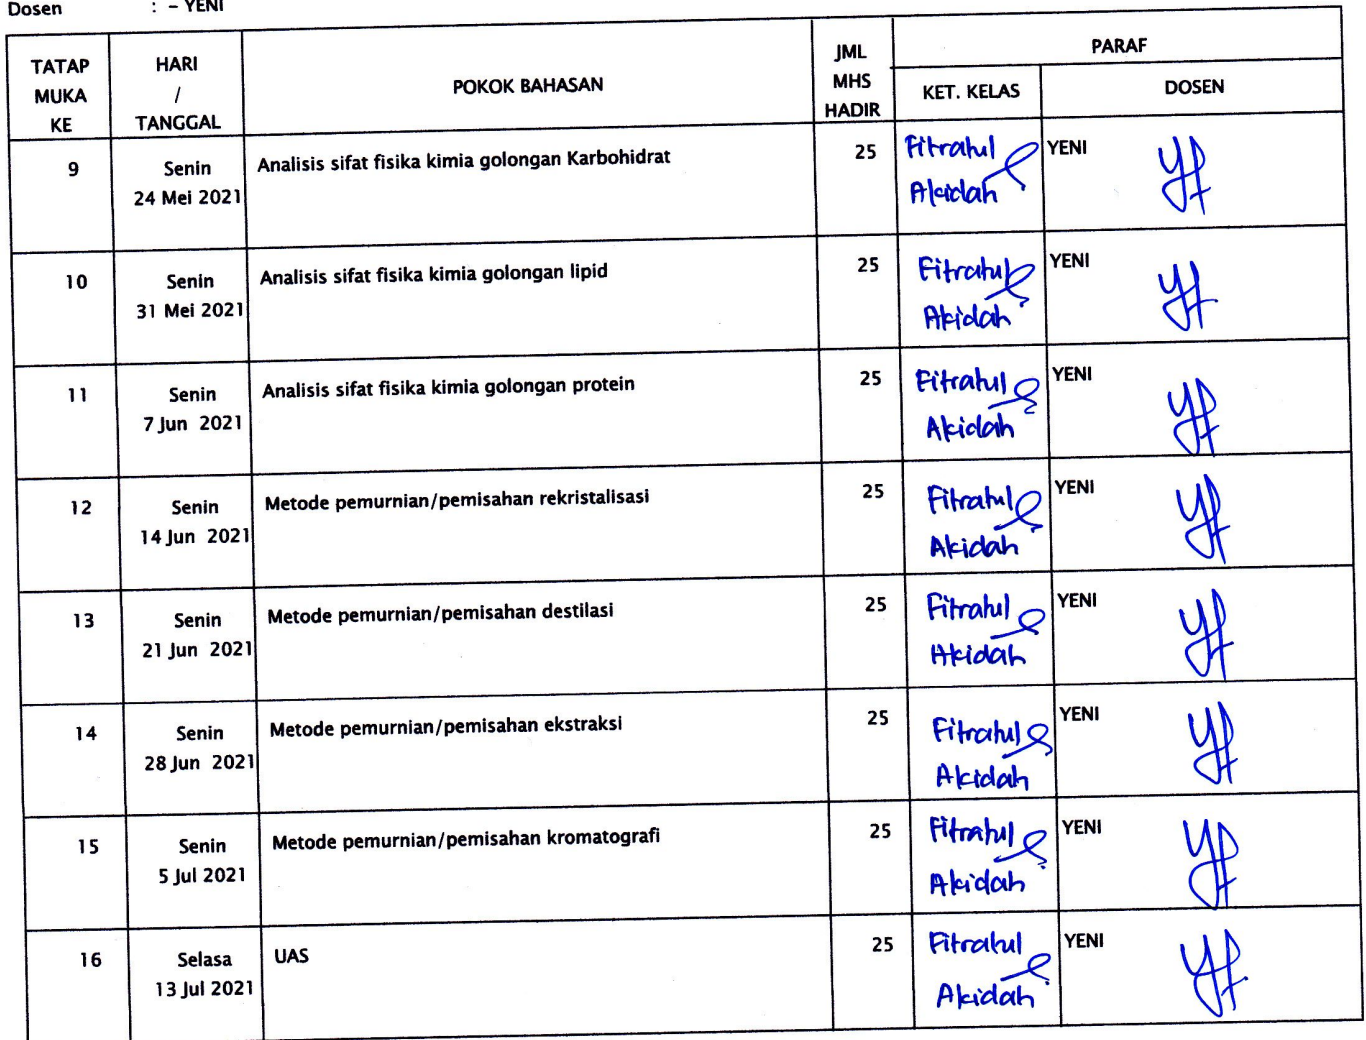 Dosen : - YENI
TATAP MUKA KE
HARI / TANGGAL
POKOK BAHASAN
JML MHS HADIR
PARAF
KET. KELAS
DOSEN
9
Senin
24 Mei 2021
Analisis sifat fisika kimia golongan Karbohidrat
25
Fitratul
Akidah
YENI
10
Senin
31 Mei 2021
Analisis sifat fisika kimia golongan lipid
25
Fitratul
Akidah
YENI
11
Senin
7 Jun 2021
Analisis sifat fisika kimia golongan protein
25
Fitratul
Akidah
YENI
12
Senin
14 Jun 2021
Metode pemurnian/pemisahan rekristalisasi
25
Fitratul
Akidah
YENI
13
Senin
21 Jun 2021
Metode pemurnian/pemisahan destilasi
25
Fitratul
Akidah
YENI
14
Senin
28 Jun 2021
Metode pemurnian/pemisahan ekstraksi
25
Fitratul
Akidah
YENI
15
Senin
5 Jul 2021
Metode pemurnian/pemisahan kromatografi
25
Fitratul
Akidah
YENI
16
Selasa
13 Jul 2021
UAS
25
Fitratul
Akidah
YENI